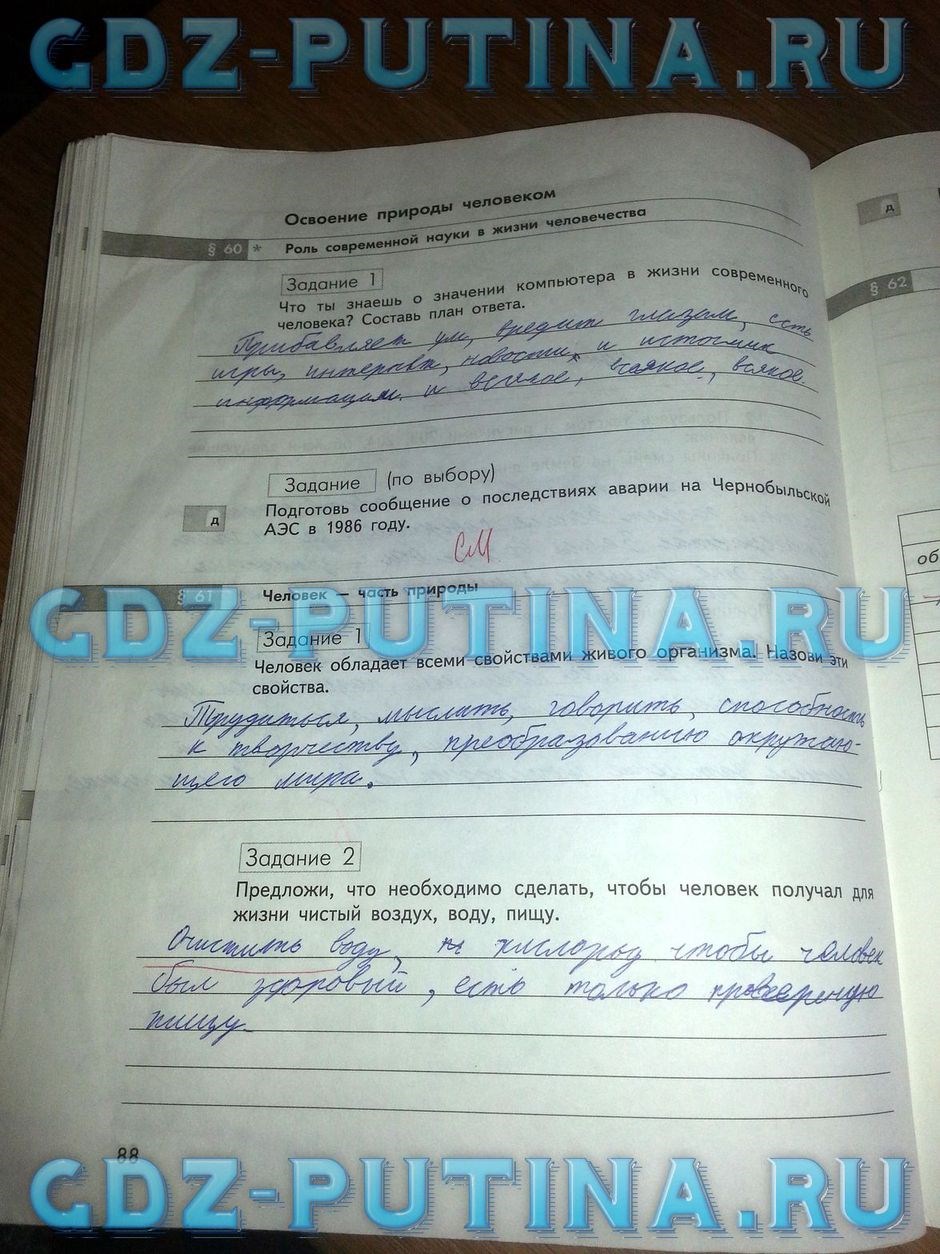 GDZ-PUTINA.RU
Освоение природы человеком
§ 60 * Роль современной науки в жизни человечества
Задание 1
Что ты знаешь о значении компьютера в жизни современного
человека? Составь план ответа.
Прибавляет ум, вредит глазам, есть
игры, интернет, новости, и источник
информации и всякое, всякое, всякое.
Задание (по выбору)
д Подготовь сообщение о последствиях аварии на Чернобыльской
АЭС в 1986 году.
СМ
§ 61 Человек — часть природы
GDZ-PUTINA.RU
Задание 1
Человек обладает всеми свойствами живого организма. Назови эти
свойства.
Трудиться, мыслить, говорить, способность
к творчеству, преобразованию окружаю-
щего мира.
Задание 2
Предложи, что необходимо сделать, чтобы человек получал для
жизни чистый воздух, воду, пищу.
Очистить воду, кислород чтобы человек
был здоровый, есть только проверенную
пищу.
88
GDZ-PUTINA.RU
д
§ 62
об